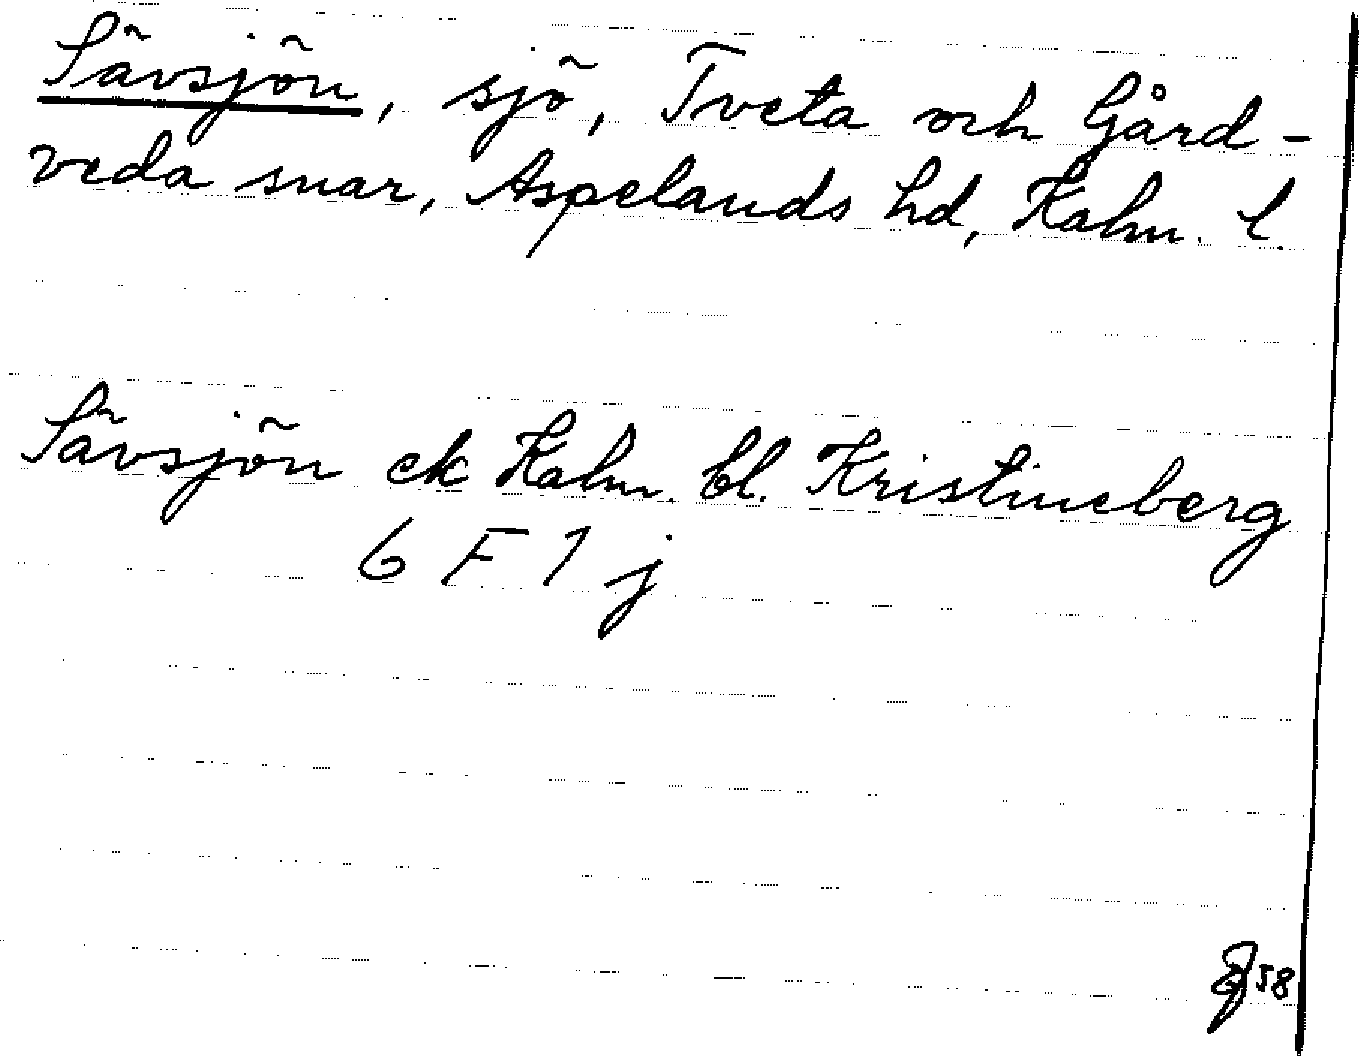 Sävsjön, sjö, Tveta och Gård-
veda snar, Aspelands hd, Kalm. l.
Sävsjön ek Kalm. bl. Kristineberg
6 F 1 j
58